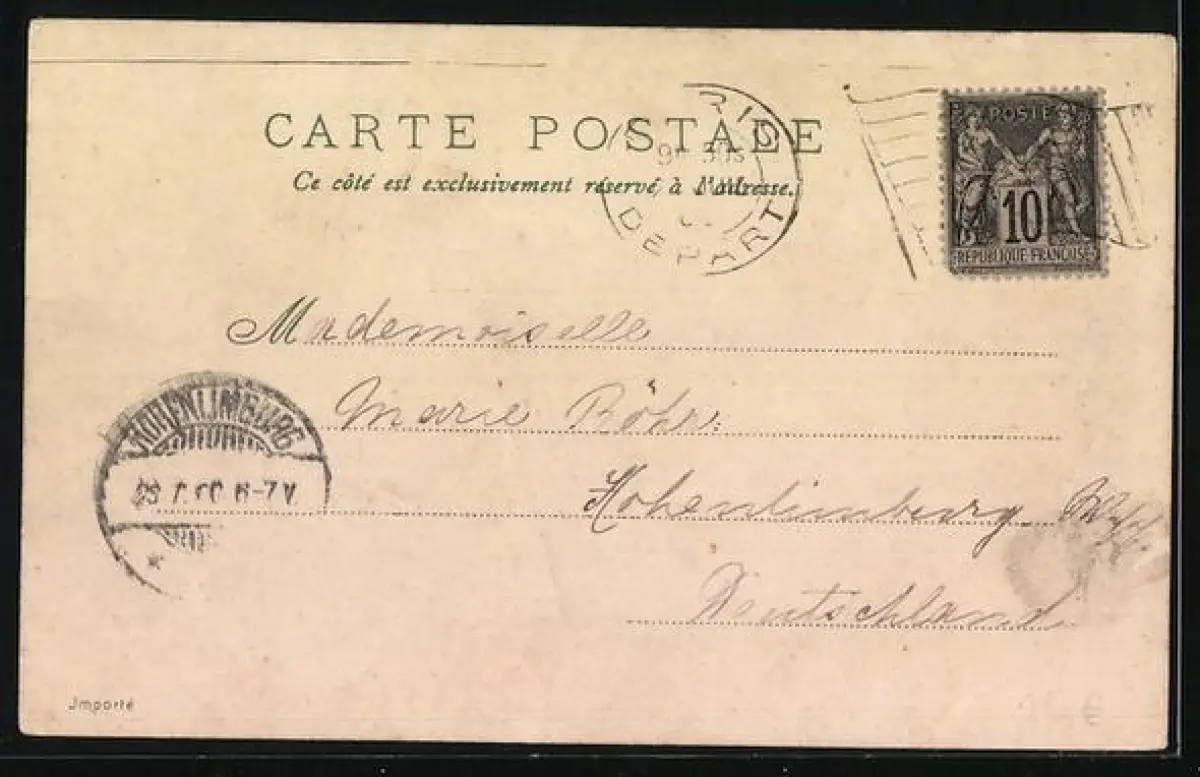 CARTE POSTALE
Ce côté est exclusivement réservé à l'adresse.
PARIS
DEPART
POSTE
10
REPUBLIQUE FRANÇAISE
Mademoiselle
Marie Böhr.
Hohenlimburg
Deutschland
HOHENLIMBURG
6-7 V
Importé